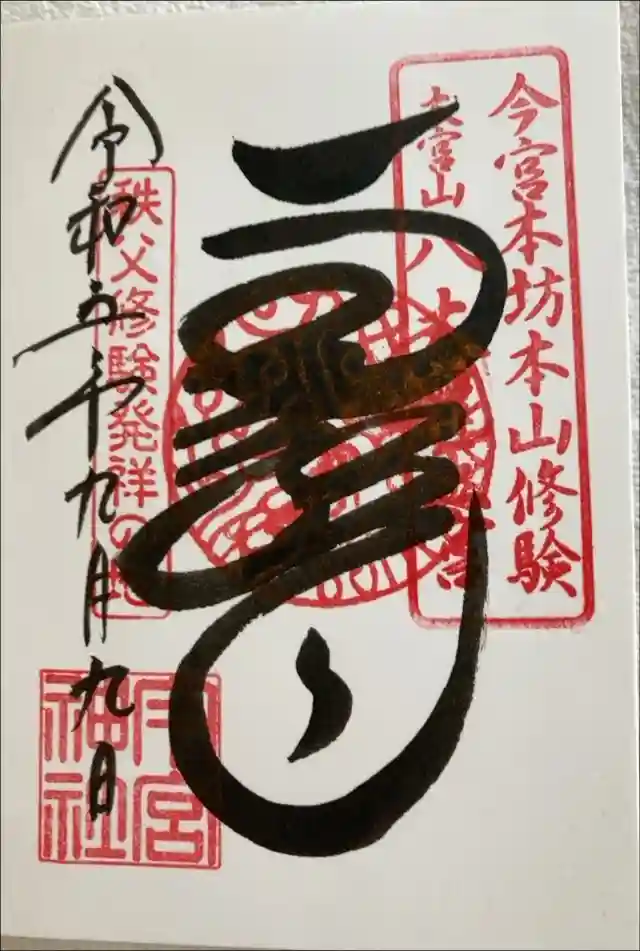 今宮本坊本山修験
大宮山八大
令和五年九月九日
秩父修験発祥の地
今宮
神社